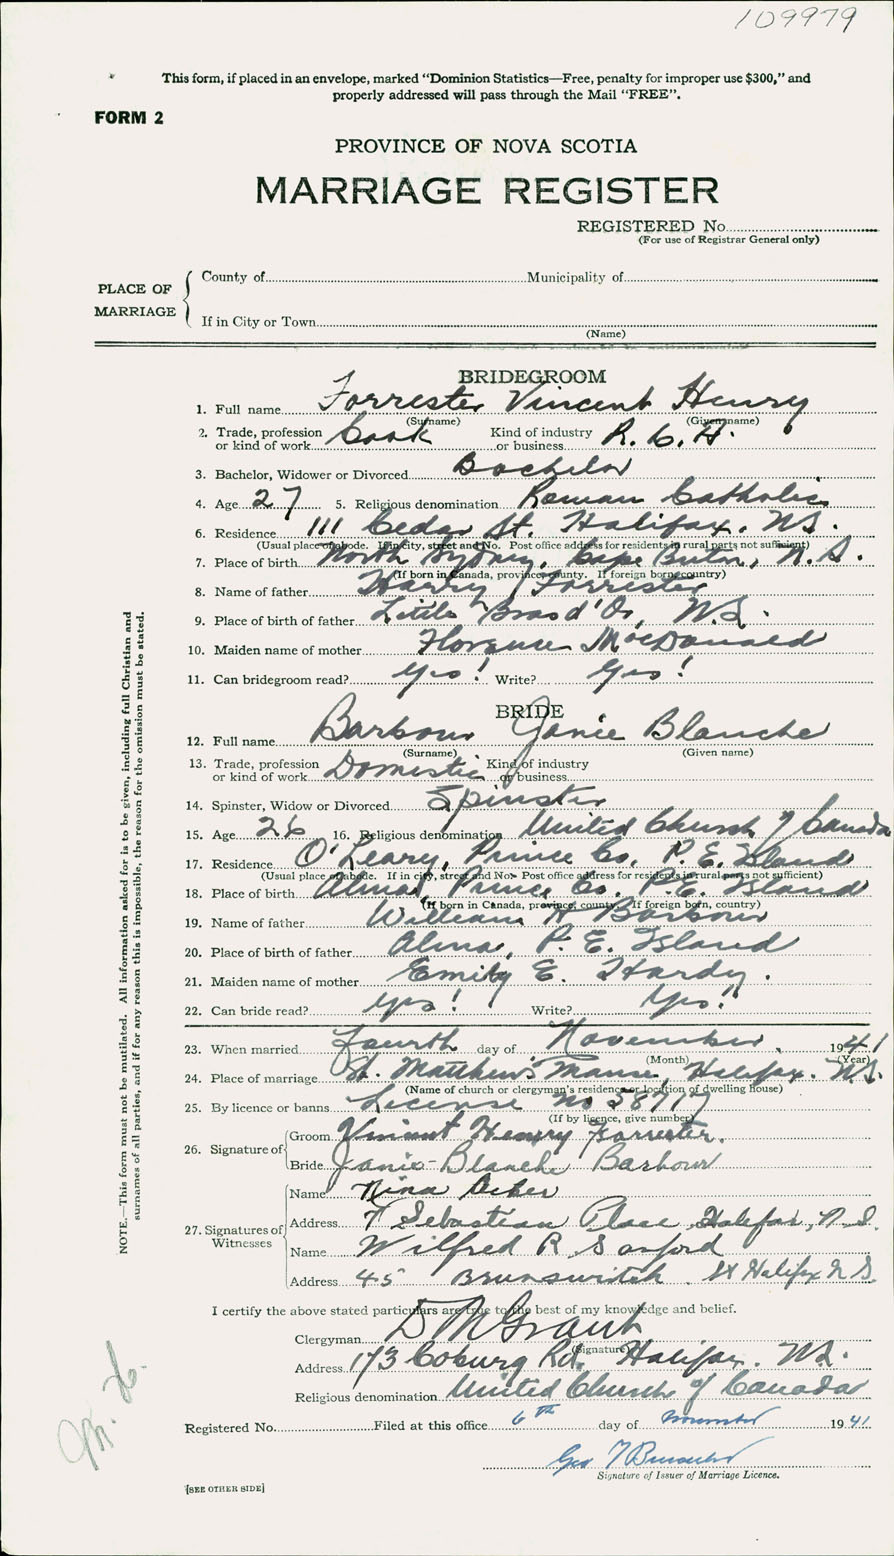 109979
This form, if placed in an envelope, marked "Dominion Statistics—Free, penalty for improper use $300," and
properly addressed will pass through the Mail "FREE".
FORM 2
PROVINCE OF NOVA SCOTIA
MARRIAGE REGISTER
REGISTERED No.
(For use of Registrar General only)
PLACE OF MARRIAGE
County of Municipality of
If in City or Town
(Name)
BRIDEGROOM
1. Full name Forrester Vincent Henry
(Surname) (Given name)
2. Trade, profession or kind of work Cook Kind of industry or business R.C.A.
3. Bachelor, Widower or Divorced Bachelor
4. Age 27 5. Religious denomination Roman Catholic
6. Residence 111 Cedar St. Halifax. N.S.
(Usual place of abode. If in city, street and No. Post office address for residents in rural parts not sufficient)
7. Place of birth North Sydney, Cape Breton, N.S.
(If born in Canada, province, county. If foreign born, country)
8. Name of father Harry Forrester
9. Place of birth of father Little Bras d'Or, N.S.
10. Maiden name of mother Florence MacDonald
11. Can bridegroom read? Yes! Write? Yes!
BRIDE
12. Full name Barbour Janie Blanche
(Surname) (Given name)
13. Trade, profession or kind of work Domestic Kind of industry or business
14. Spinster, Widow or Divorced Spinster
15. Age 26 16. Religious denomination United Church of Canada
17. Residence O'Leary, Prince Co. P.E. Island
(Usual place of abode. If in city, street and No. Post office address for residents in rural parts not sufficient)
18. Place of birth Alma, Prince Co. P.E. Island
(If born in Canada, province, county. If foreign born, country)
19. Name of father William H Barbour
20. Place of birth of father Alma, P.E. Island
21. Maiden name of mother Emily E. Hardy.
22. Can bride read? Yes! Write? Yes!
23. When married Fourth day of November, 1941
(Month) (Year)
24. Place of marriage St. Matthew's Manse, Halifax. N.S.
(Name of church or clergyman's residence or location of dwelling house)
25. By licence or banns License No
(If by licence, give number)
26. Signature of
Groom Vincent Henry Forrester.
Bride Janie Blanche Barbour
27. Signatures of Witnesses
Name Nina
Address 7 Sebastian Place Halifax, N.S.
Name Wilfred R Sanford
Address 45 Brunswick St Halifax N.S.
I certify the above stated particulars are true to the best of my knowledge and belief.
Clergyman D M Grant
(Signature)
Address 173 Coburg Rd. Halifax. N.S.
Religious denomination United Church of Canada
Registered No. Filed at this office 6th day of November 1941
Geo
Signature of Issuer of Marriage Licence.
[SEE OTHER SIDE]
NOTE.—This form must not be mutilated. All information asked for is to be given, including full Christian and
surnames of all parties, and if for any reason this is impossible, the reason for the omission must be stated.